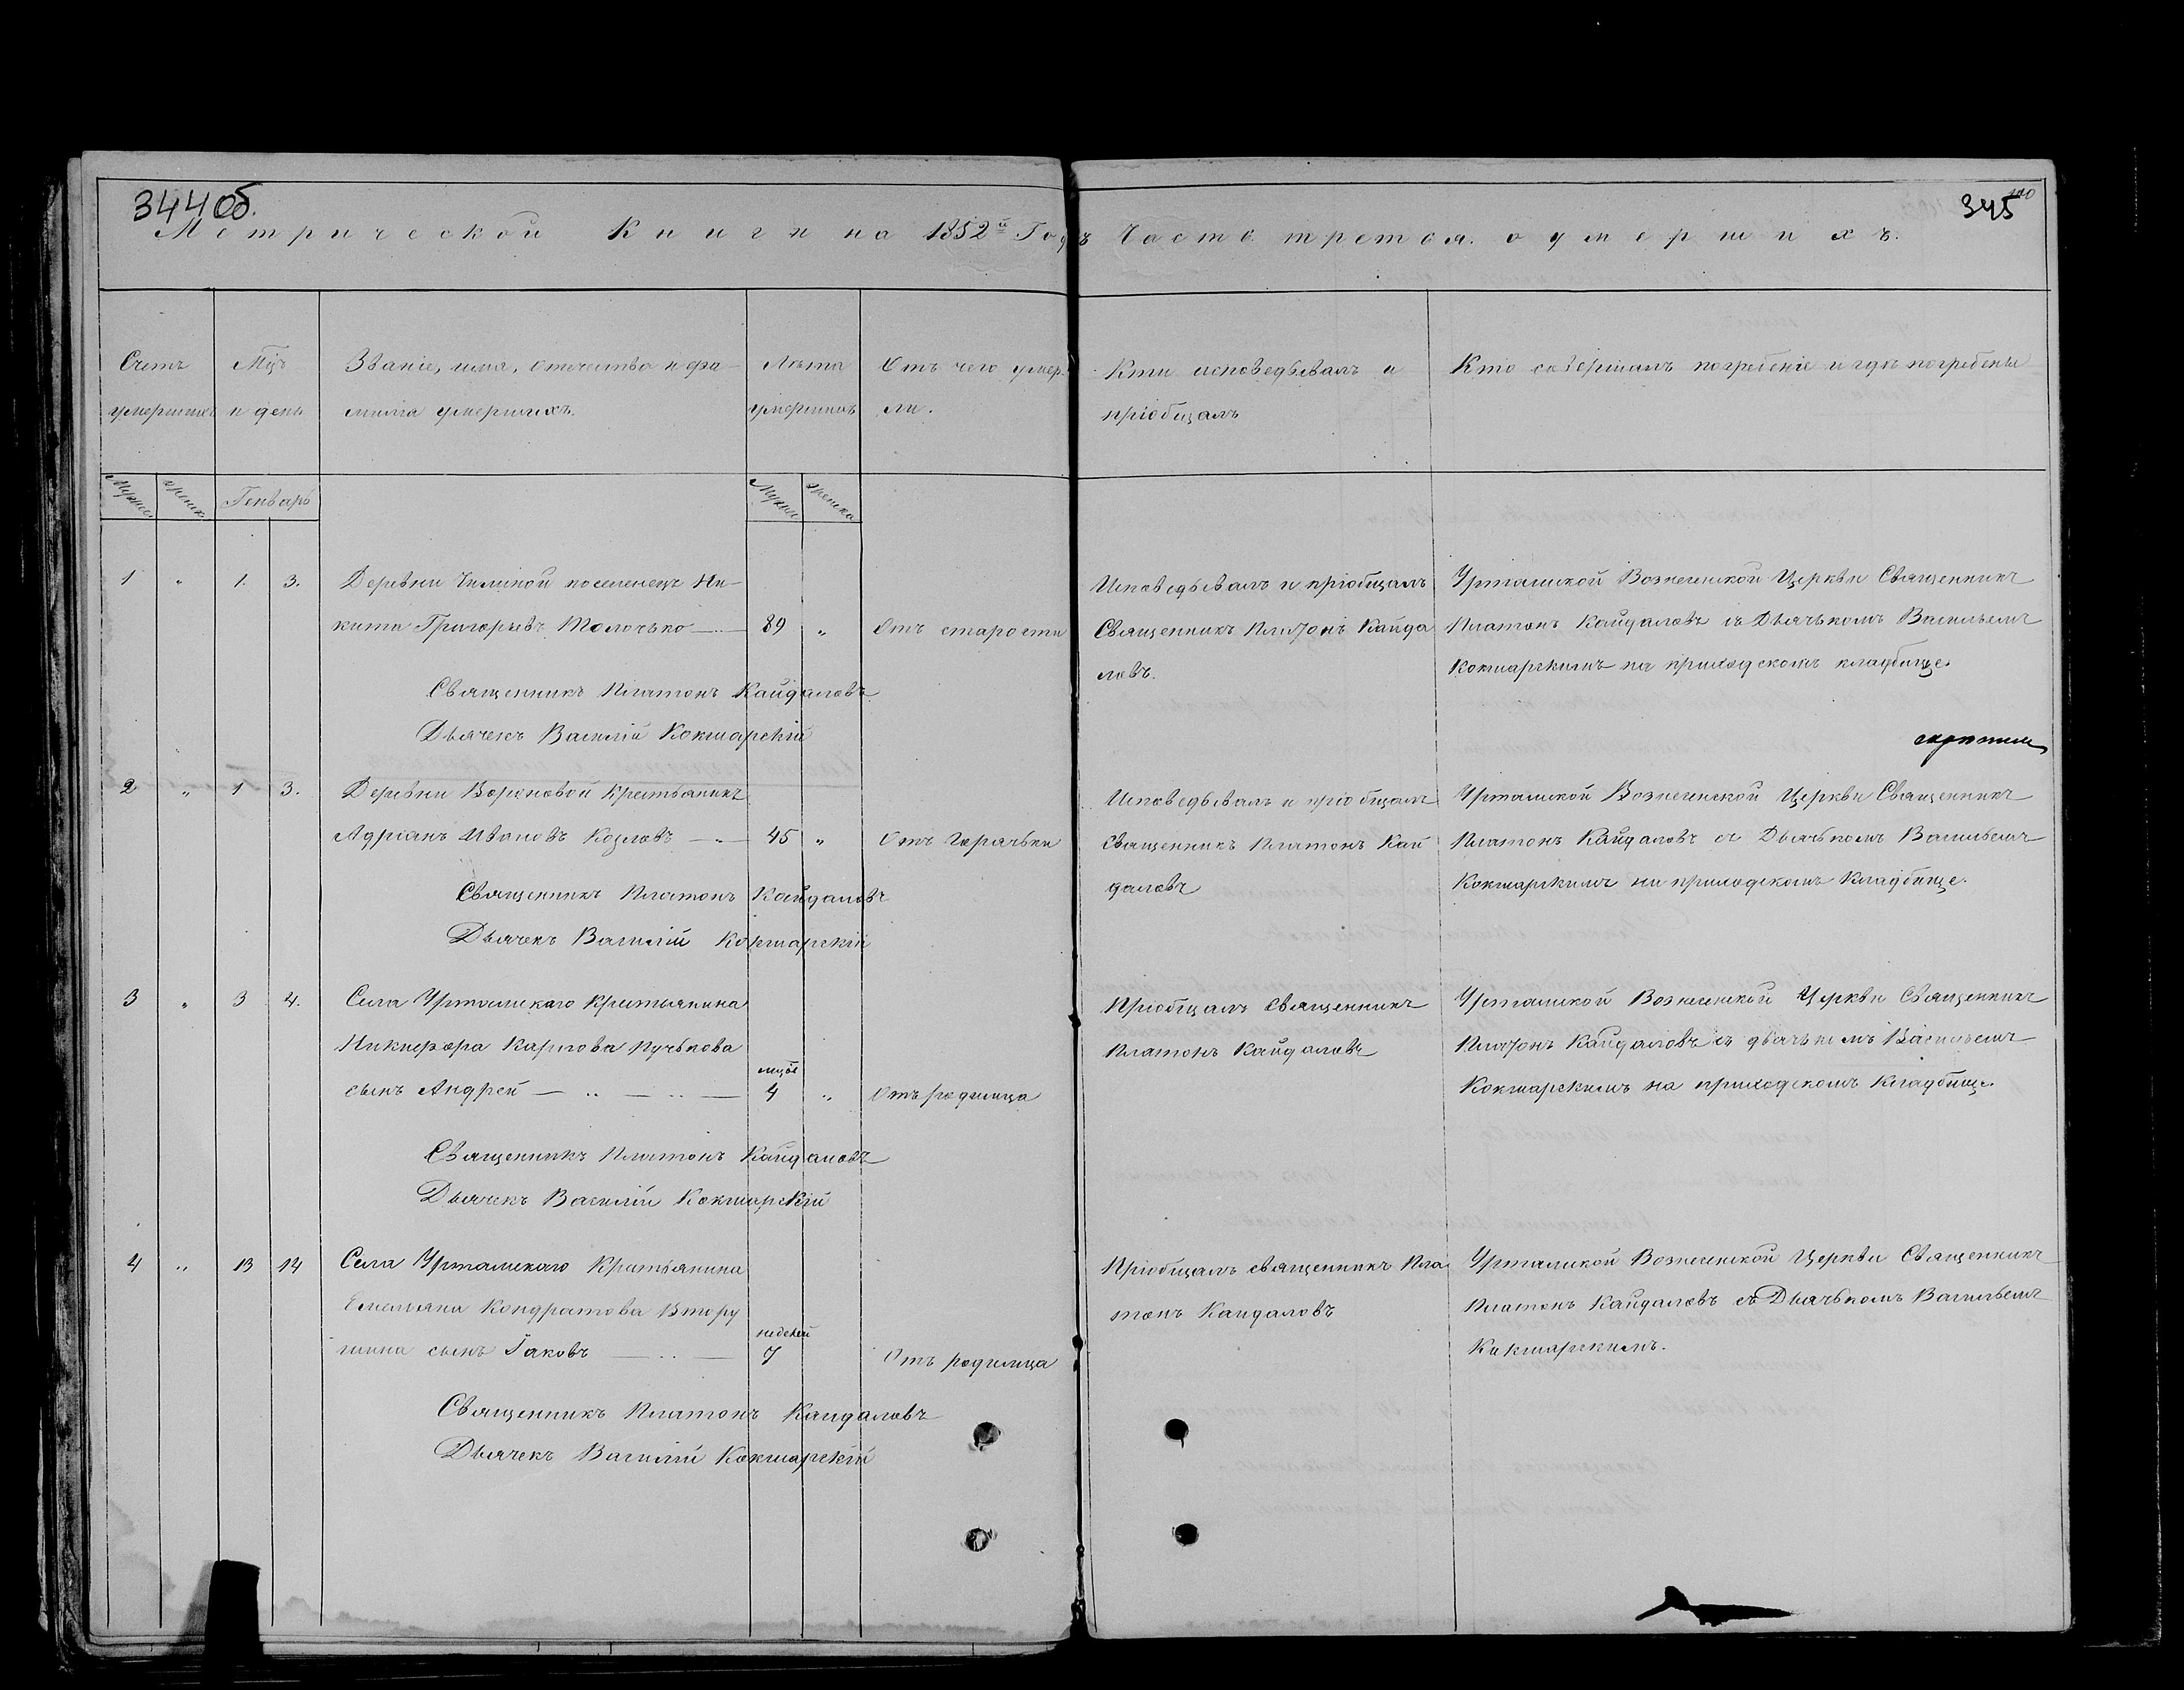 344 об.
345
Метрической Книги на 1852й Годъ Часть третья. о умершихъ.
Счетъ умершихъ
Мцъ и день
Званіе, имя, отчество и фамилія умершихъ.
Лѣта умершихъ
Отъ чего умерли.
Кто исповедывалъ и пріобщалъ
Кто совершалъ погребеніе и гдѣ погребены
Мужес. женск. Генварь
Мужеск женска
1 „ 1. 3. Деревни Чилиной поселенецъ Ни-
кита Григорьевъ Толочько 89 „ Отъ старости
Исповедывалъ и пріобщалъ
Священникъ Платонъ Кайда
ловъ.
Уртамской Вознесенской Церкви Священникъ
Платонъ Кайдаловъ съ Дьячькомъ Васильемъ
Кокшарскимъ на приходскомъ кладбище.
Священникъ Платонъ Кайдаловъ
Дьячекъ Василій Кокшарскій
2 „ 1 3. Деревни Вороновой Крестьянинъ
Адріанъ Ивановъ Козловъ 45 „ Отъ Горячьки
Исповедывалъ и пріобщалъ
Священникъ Платонъ Кай
даловъ
Уртамской Вознесенской Церкви Священникъ
Платонъ Кайдаловъ съ Дьячькомъ Васильемъ
Кокшарскимъ на приходскомъ Кладбище.
Священникъ Платонъ Кайдаловъ
Дьячекъ Василій Кокшарскій
3 „ 3 4. Села Уртамскаго Крестьянина
Никифора Карпова Пучькова
сынъ Андрей мцов 4 „ Отъ родимца
Пріобщалъ Священникъ
Платонъ Кайдаловъ
Уртамской Вознесенской Церкви Священникъ
Платонъ Кайдаловъ съ дьячькомъ Васильемъ
Кокшарскимъ на приходскомъ Кладбище.
Священникъ Платонъ Кайдаловъ
Дьячекъ Василій Кокшарскій
4 „ 13 14 Села Уртамскаго Крестьянина
Емельяна Кондратова Втору
шина сынъ Іаковъ недель 7 Отъ родимца
Пріобщалъ священникъ Пла
тонъ Кайдаловъ
Уртамской Вознесенской Церкви Священникъ
Платонъ Кайдаловъ съ Дьячькомъ Васильемъ
Кокшарскимъ.
Священникъ Платонъ Кайдаловъ
Дьячекъ Василій Кокшарскій